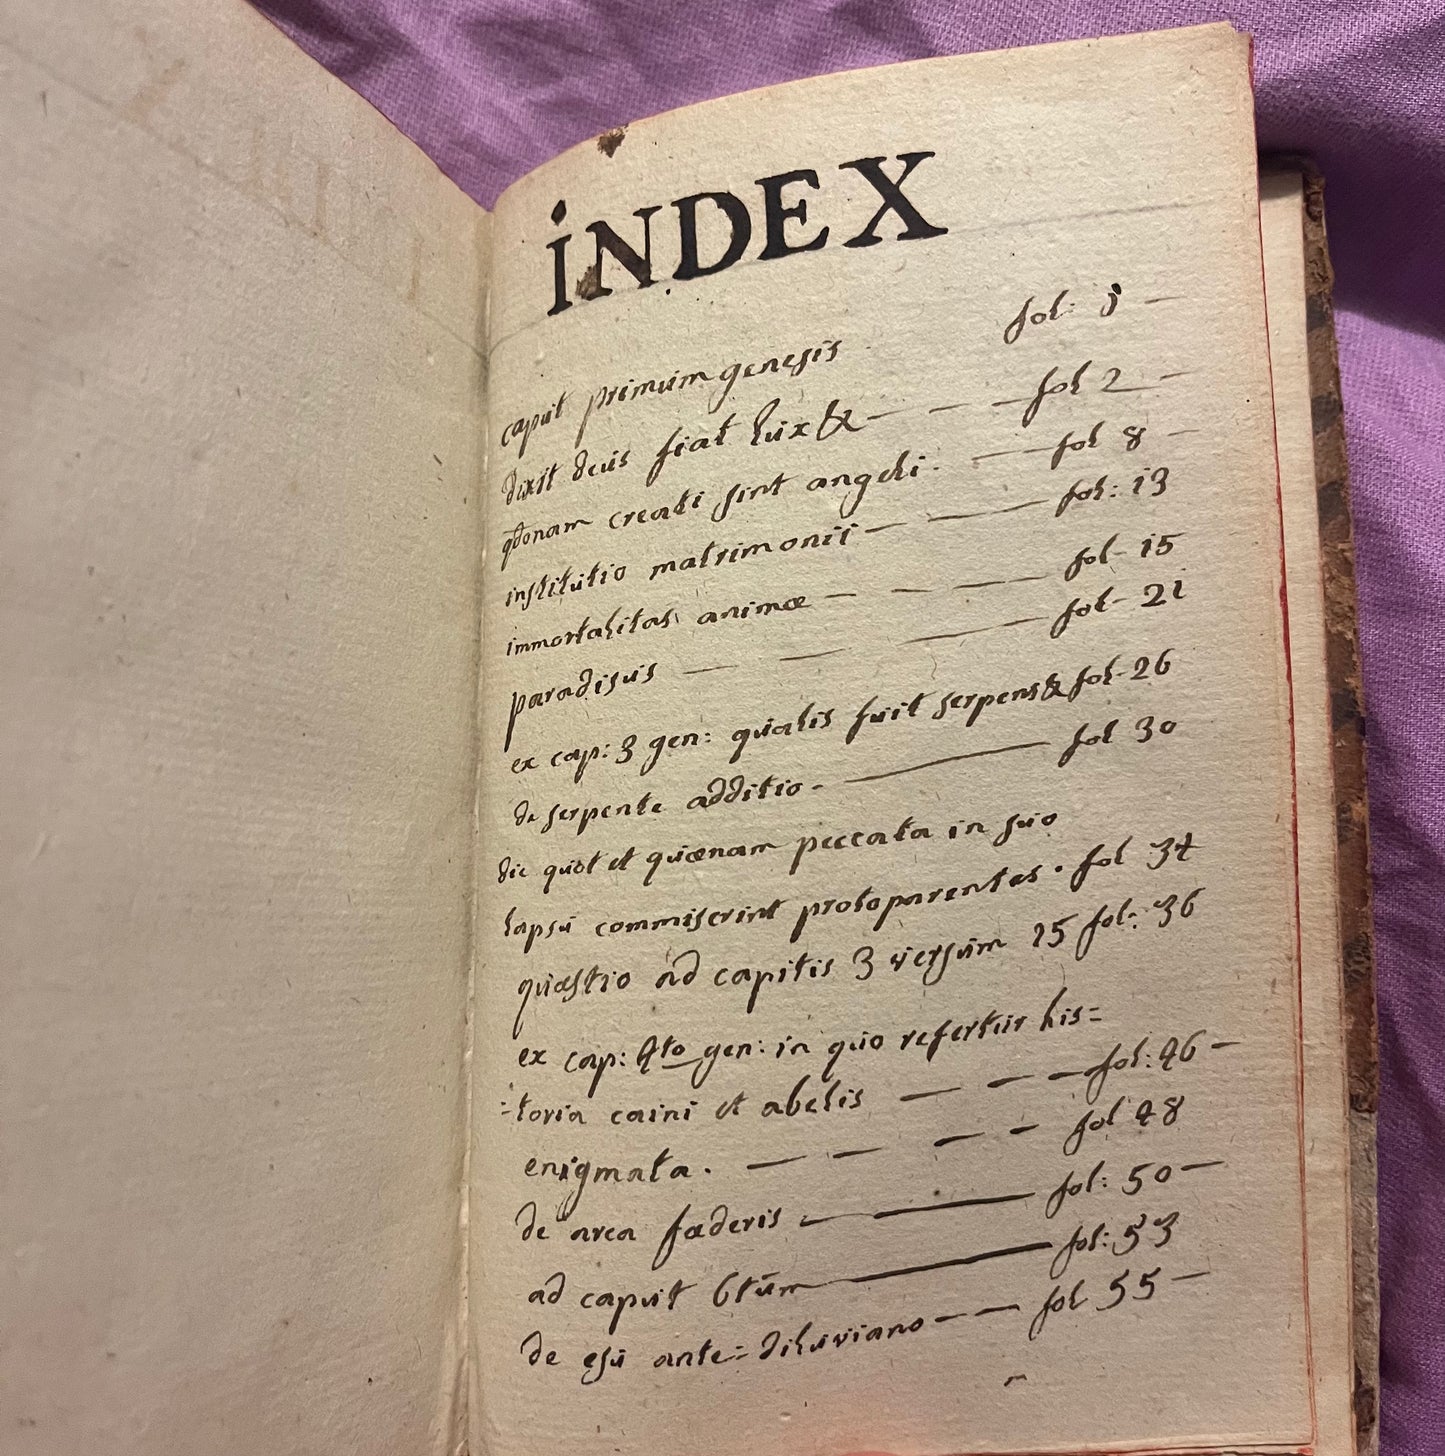 iNDEX
caput primum genesis fol: j —
dixit deus fiat lux & — — — fol 2 —
qdonam creati sint angeli. — — fol 8 —
institutio matrimonii — — — fol: i3
immortalitas animæ — — — — fol i5
paradisus — — — — fol 2i
ex cap: 3 gen: qualis fuit serpens & fol 26
de serpente additio — — fol 30
dic quot et quænam peccata in suo
lapsu commiserint protoparentes. fol 34
quæstio ad capitis 3 versum 15 fol: 36
ex cap: 4to gen: in quo refertur his=
=toria caini et abelis — — — fol: 46 —
enigmata. — — — — fol 48
de arca fæderis — — fol: 50 —
ad caput 6tum — fol: 53
de esu ante=diluviano — — fol 55 —